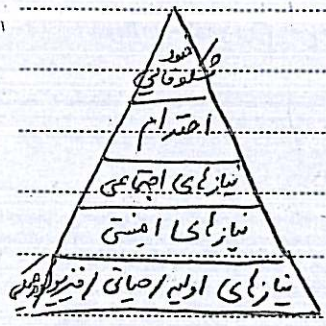 خود
شکوفائی
احترام
نیازهای اجتماعی
نیازهای امنیتی
نیازهای اولیه/حیاتی/فیزیولوژیکی